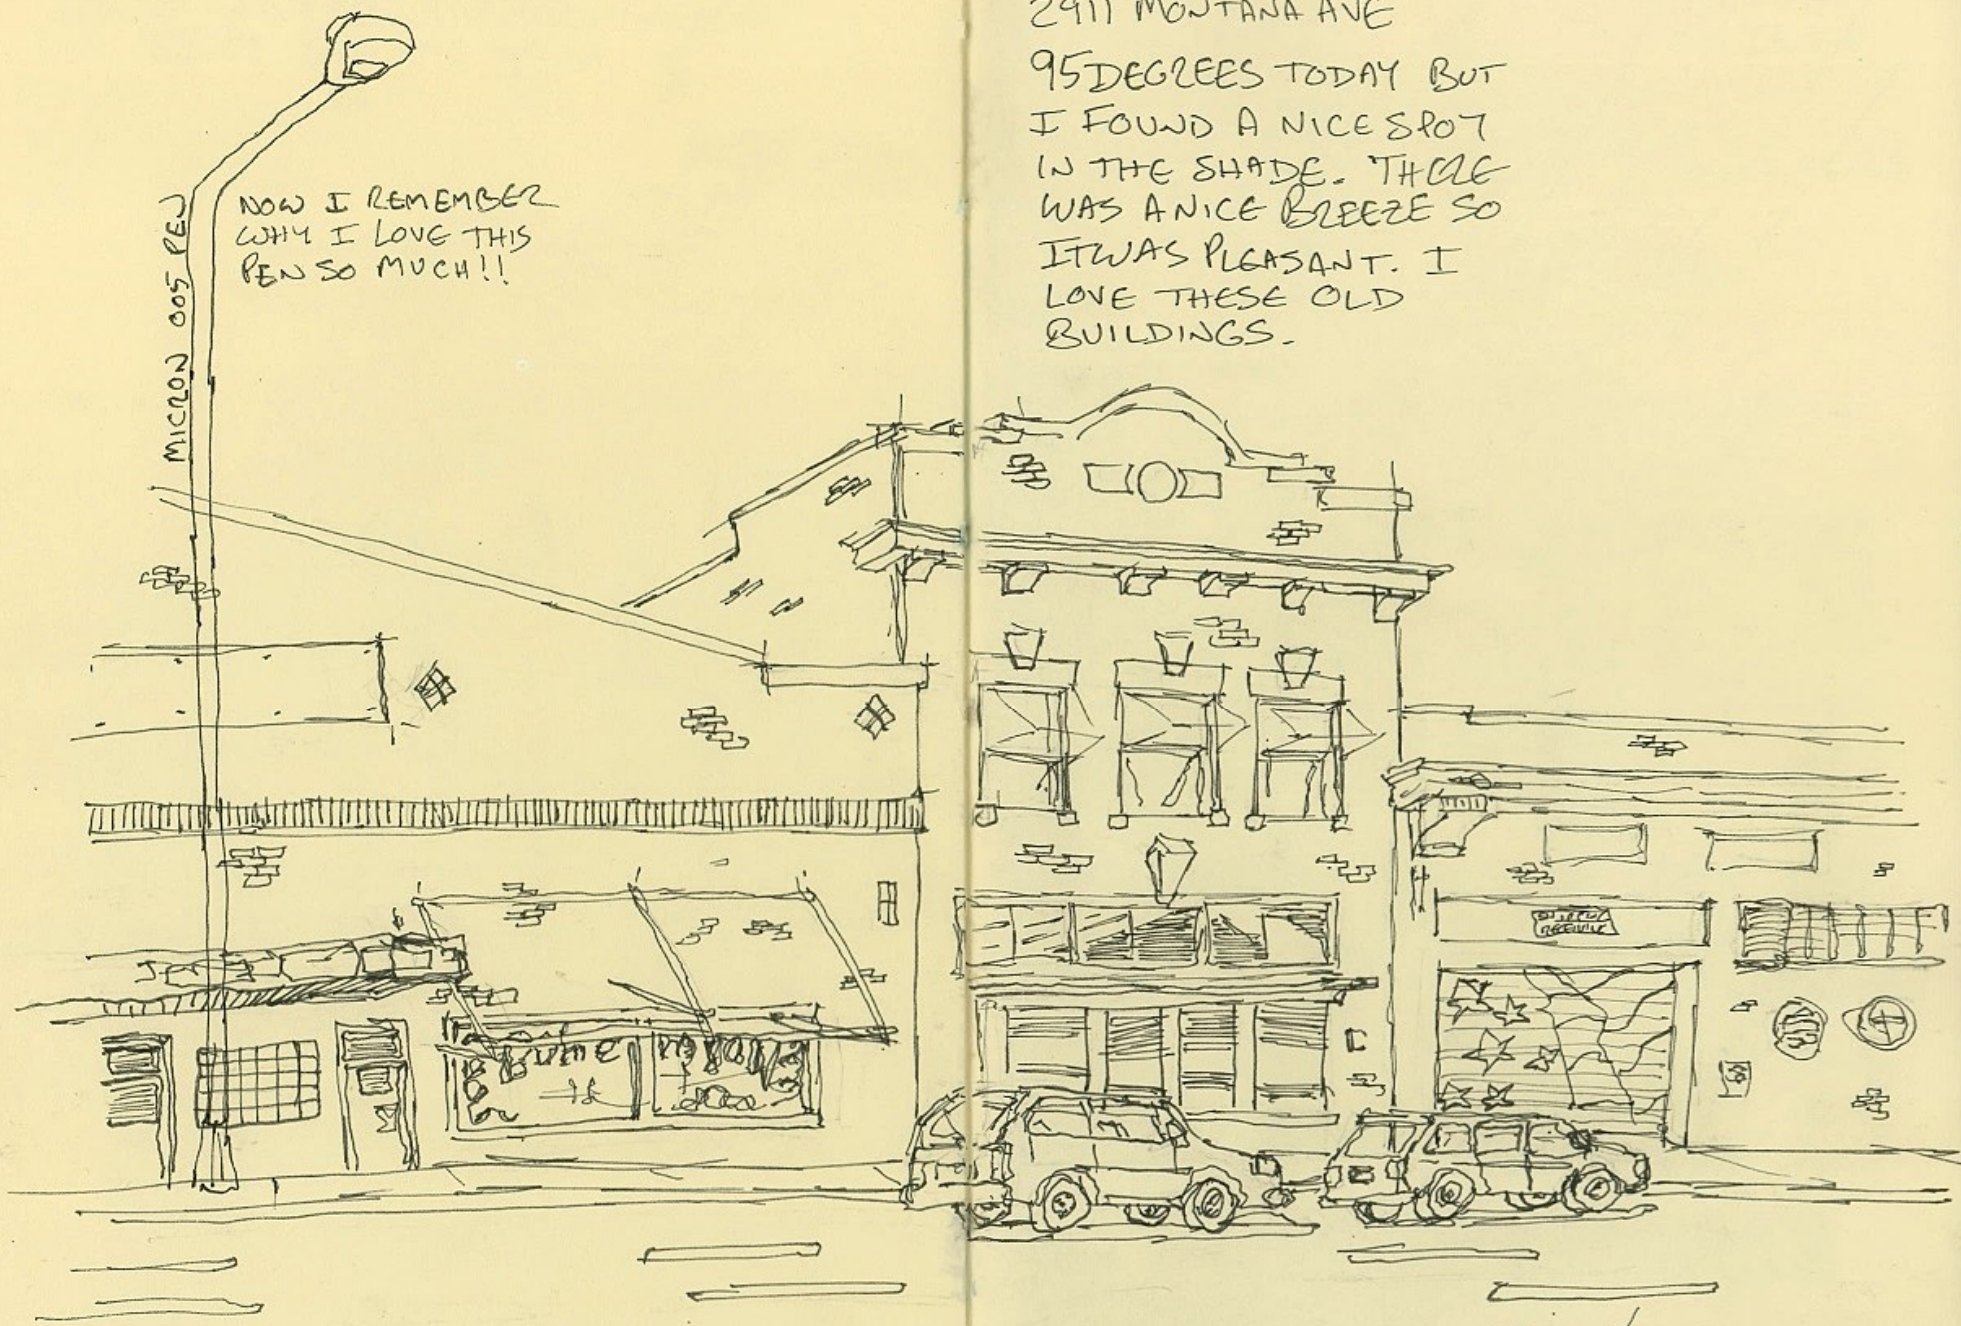 MICRON 005 PEN
NOW I REMEMBER
WHY I LOVE THIS
PEN SO MUCH!!
2911 MONTANA AVE
95 DEGREES TODAY BUT
I FOUND A NICE SPOT
IN THE SHADE. THERE
WAS A NICE BREEZE SO
IT WAS PLEASANT. I
LOVE THESE OLD
BUILDINGS.